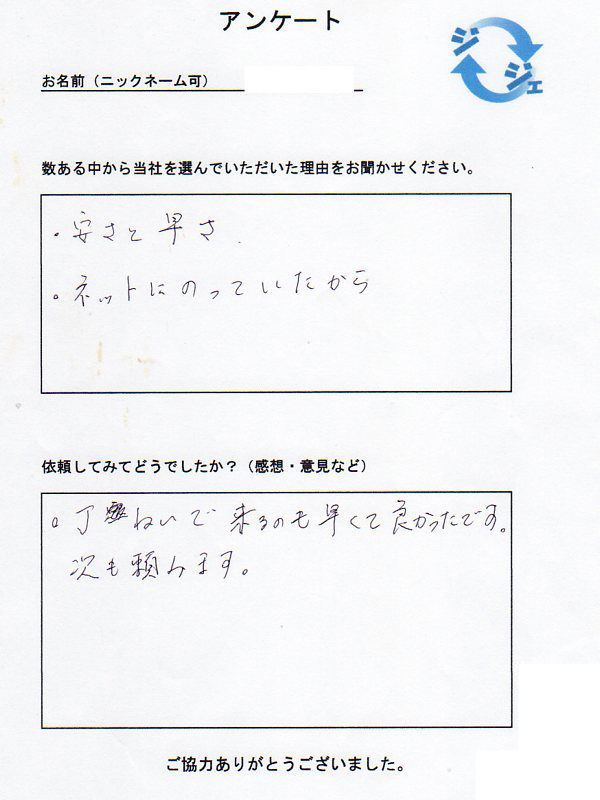 アンケート
ジジェ
お名前（ニックネーム可）
数ある中から当社を選んでいただいた理由をお聞かせください。
・安さと早さ.
・ネットにのっていたから
依頼してみてどうでしたか？（感想・意見など）
・丁ねいで来るのも早くて良かったです。
次も頼みます。
ご協力ありがとうございました。